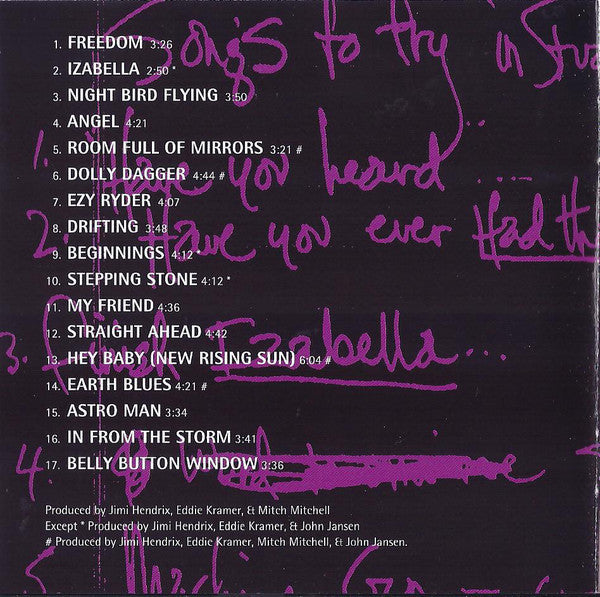 Songs to try in Stu
1. FREEDOM 3:26
2. IZABELLA 2:50 *
3. NIGHT BIRD FLYING 3:50
4. ANGEL 4:21
5. ROOM FULL OF MIRRORS 3:21 #
6. DOLLY DAGGER 4:44 #
7. EZY RYDER 4:07
8. DRIFTING 3:48
9. BEGINNINGS 4:12 *
10. STEPPING STONE 4:12 *
11. MY FRIEND 4:36
12. STRAIGHT AHEAD 4:42
13. HEY BABY (NEW RISING SUN) 6:04 #
14. EARTH BLUES 4:21 #
15. ASTRO MAN 3:34
16. IN FROM THE STORM 3:41
17. BELLY BUTTON WINDOW 3:36
1. Have you heard ....
2. Have you ever Had th
3. Finish Izabella...
4.
5. Machine
Produced by Jimi Hendrix, Eddie Kramer, & Mitch Mitchell
Except * Produced by Jimi Hendrix, Eddie Kramer, & John Jansen
# Produced by Jimi Hendrix, Eddie Kramer, Mitch Mitchell, & John Jansen.